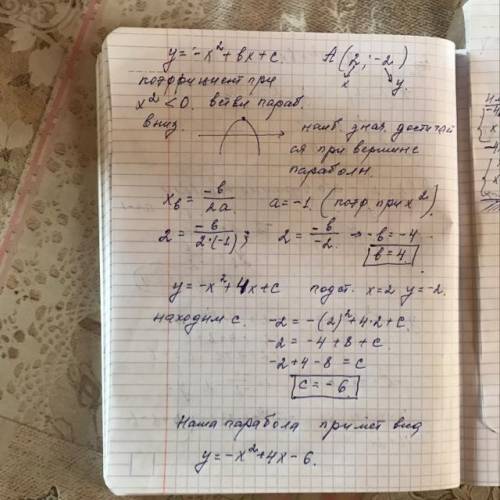 y = -x² + bx + c. A(2; -2)
x y.
коэффициент при
x² < 0, ветви параб.
вниз. наиб. знач. достигает
ся при вершине
параболы.
xв = -b/2a a = -1 (коэф при x²)
2 = -b/2·(-1); 2 = -b/-2 → -b = -4
b = 4.
y = -x² + 4x + c подст. x = 2 y = -2.
находим c. -2 = -(2)² + 4·2 + c.
-2 = -4 + 8 + c.
-2 + 4 - 8 = c
c = -6.
Наша парабола примет вид
y = -x² + 4x - 6.